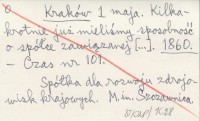 Kraków 1 maja. Kilka-
krotnie już mieliśmy sposobność
o spółce zawiązanej [...]. 1860.
– Czas nr 101.
Spółka dla rozwoju zdrojo-
wisk krajowych. M.in. Szczawnica.
K28